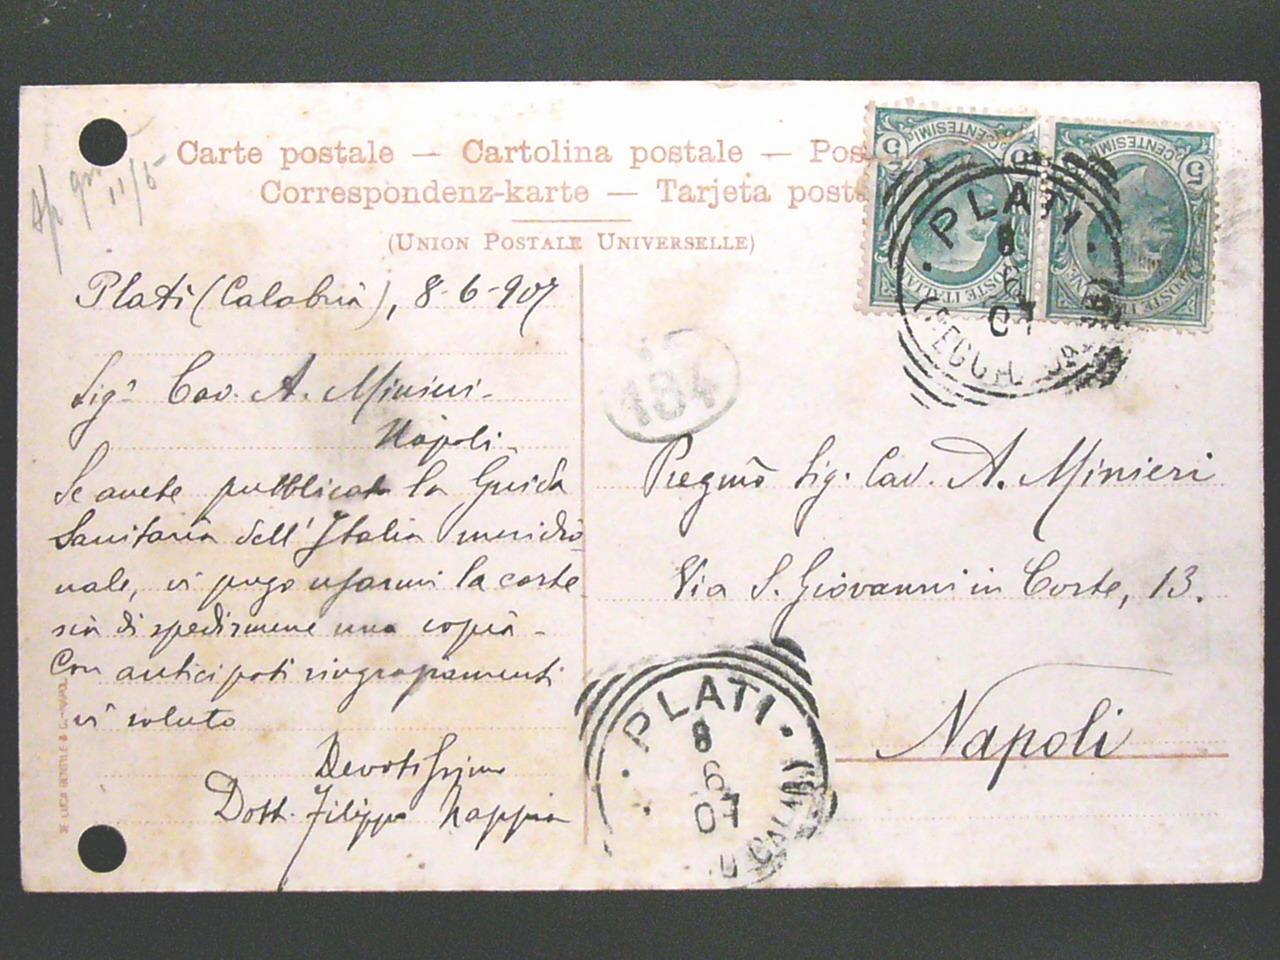 Carte postale — Cartolina postale — Pos
Correspondenz-karte — Tarjeta posta
(Union Postale Universelle)
5 CENTESIMI 5
CENTESIMI 5
POSTE ITALIANE
POSTE ITALIANE
PLATI
8
6
07
(REGGIO CALABRIA)
184
11/6
Platì (Calabria), 8-6-907
Sigr Cav. A. Minieri
Napoli
Se avete pubblicato la Guida
Sanitaria dell'Italia meridio
nale, vi prego usarmi la corte
sia di spedirmene una copia -
Con anticipati ringraziamenti
vi saluto
Devotissimo
Dott. Filippo Zappia
Pregmo Sig. Cav. A. Minieri
Via S. Giovanni in Corte, 13.
Napoli
PLATI
8
6
07
DE LUCA GENTILE & C. - NAPOLI